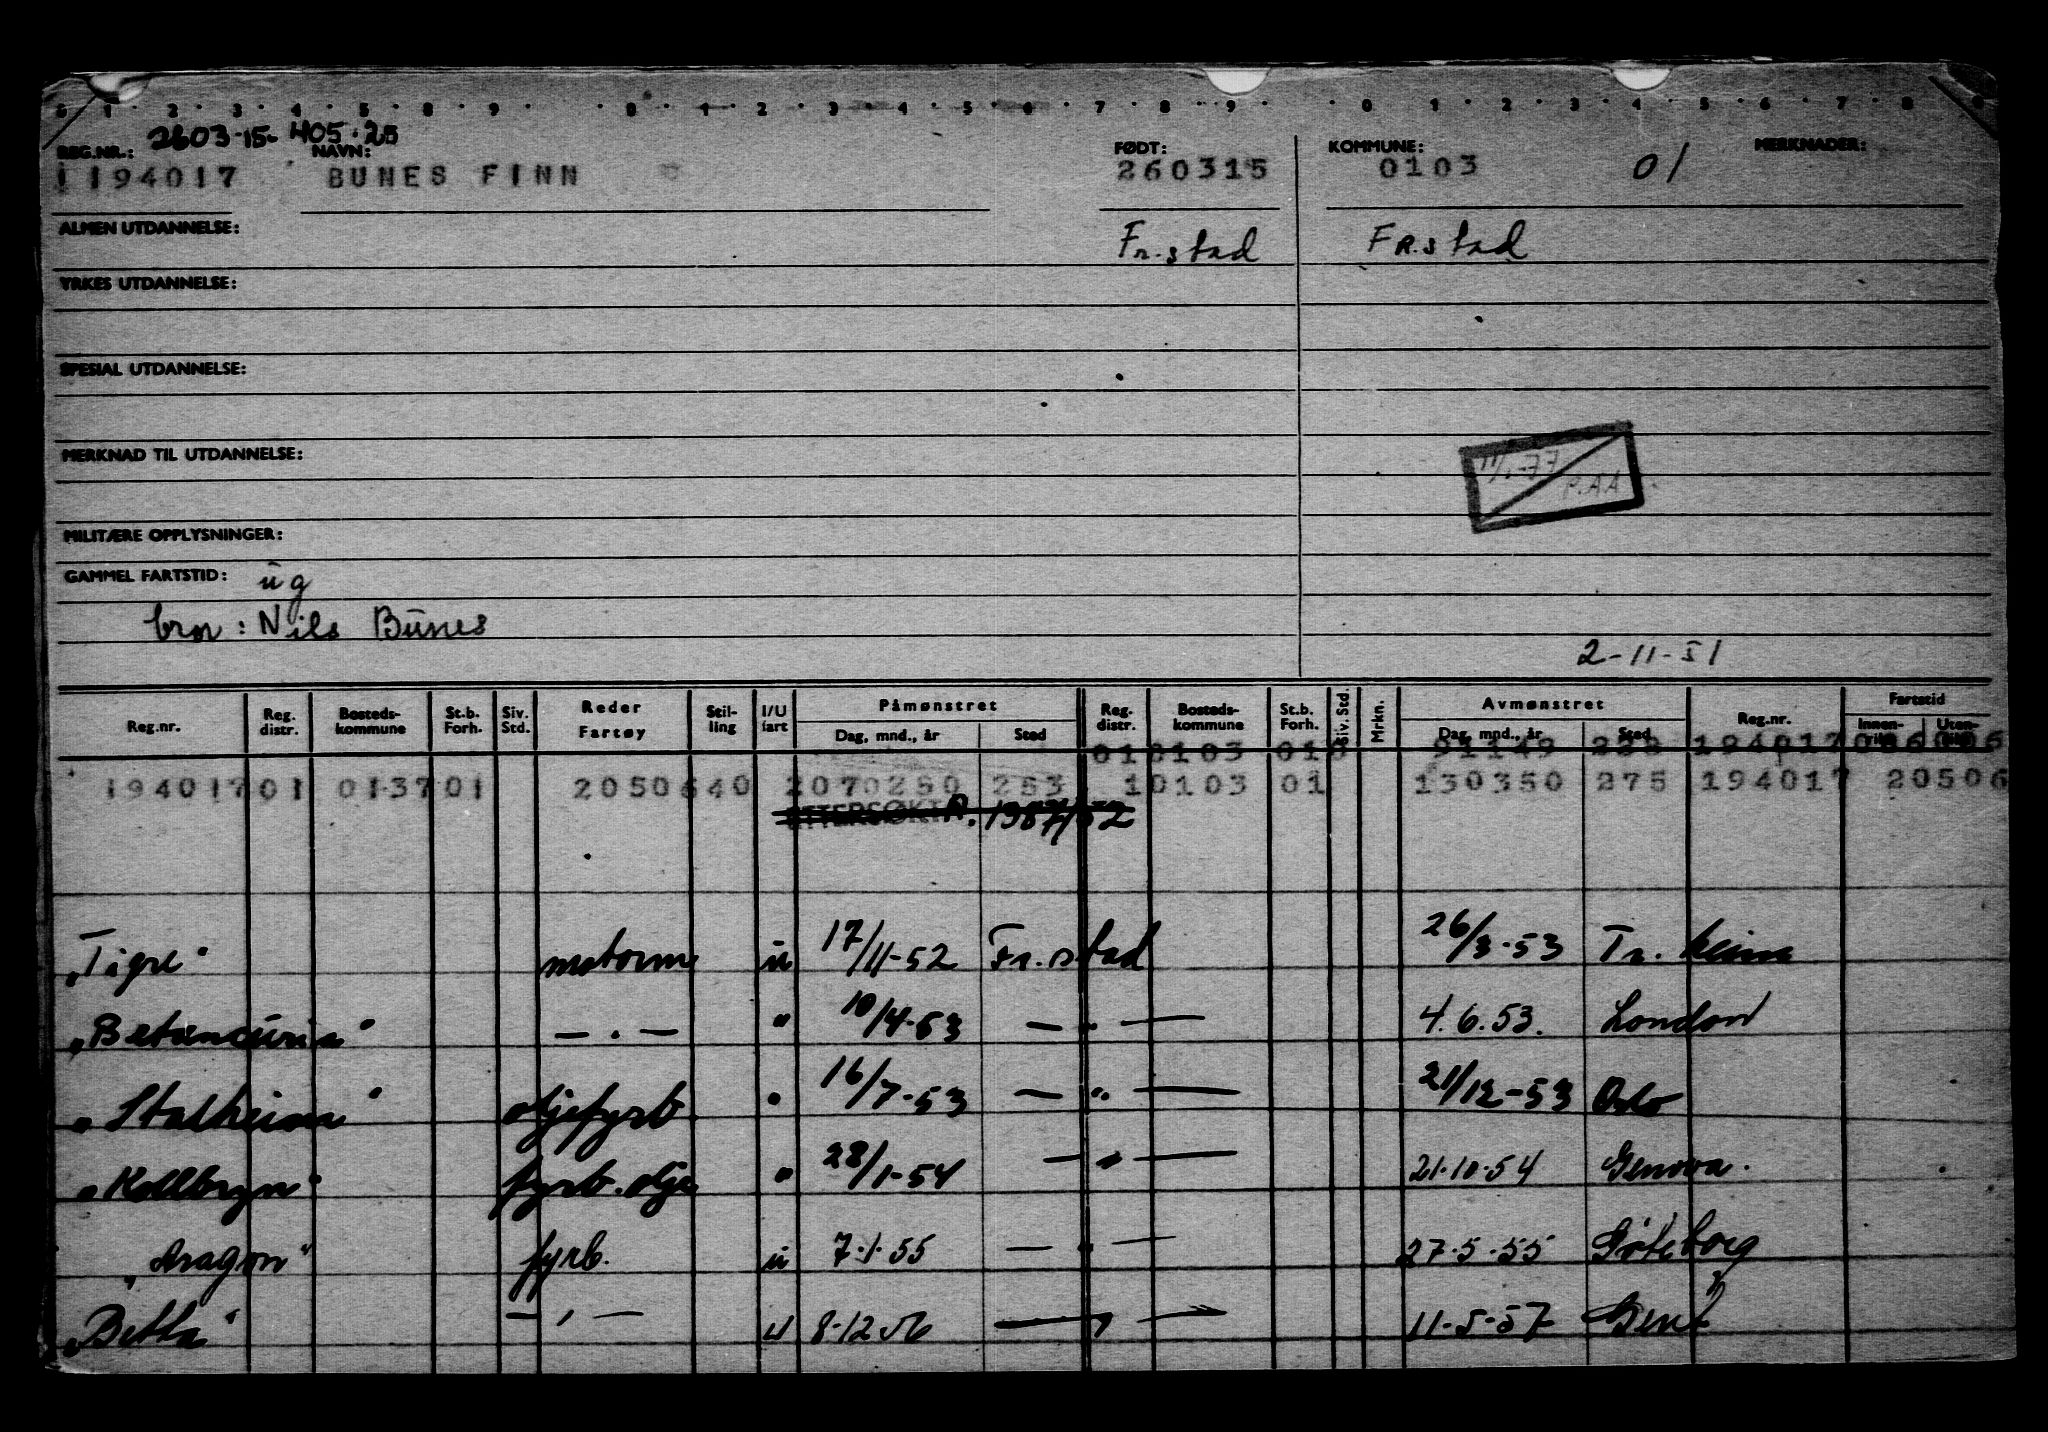 0 1 2 3 4 5 8 9 8 1 2 3 4 5 6 7 8 9 0 1 2 3 4 5 6 7 8 9
2603-15- 405.25
REG.NR.: NAVN: FØDT: KOMMUNE: MERKNADER:
1194017 BUNES FINN 260315 0103 01
ALMEN UTDANNELSE: Fr.stad FR.stad
YRKES UTDANNELSE:
SPESIAL UTDANNELSE:
MERKNAD TIL UTDANNELSE:
P.AA
MILITÆRE OPPLYSNINGER:
GAMMEL FARTSTID: ug
bror: Nils Bunes
2-11-51
Reg.nr. Reg. distr. Bosteds-kommune St.b. Forh. Siv. Std. Reder Fartøy Stil-ling I/U fart Påmønstret Dag, mnd., år Sted Reg. distr. Bosteds-kommune St.b. Forh. Siv. Std. Mrkn. Avmønstret Dag, mnd., år Sted Reg.nr. Fartstid Innen-riks Uten-riks
194017 01 0137 01 2050640 2070250 253 10103 01 130350 275 194017 20506
ETTERSØKT R. 1387/52
"Tigre" motorm u 17/11-52 Fr.stad 26/3-53 Tr.heim
"Betancuria" — . — " 10/4-53 — " — 4.6.53. London
"Stalheim" oljefyrb " 16/7-53 — " — 21/12-53 Oslo
"Kollbryn" fyrb.olje " 28/1-54 — " — 21.10.54 Genova.
"Aragon" fyrb. u 7.1.55 — " — 27.5.55 Göteborg
"Betta" — , — u 8.12 56 — " — 11-5-57 Gent